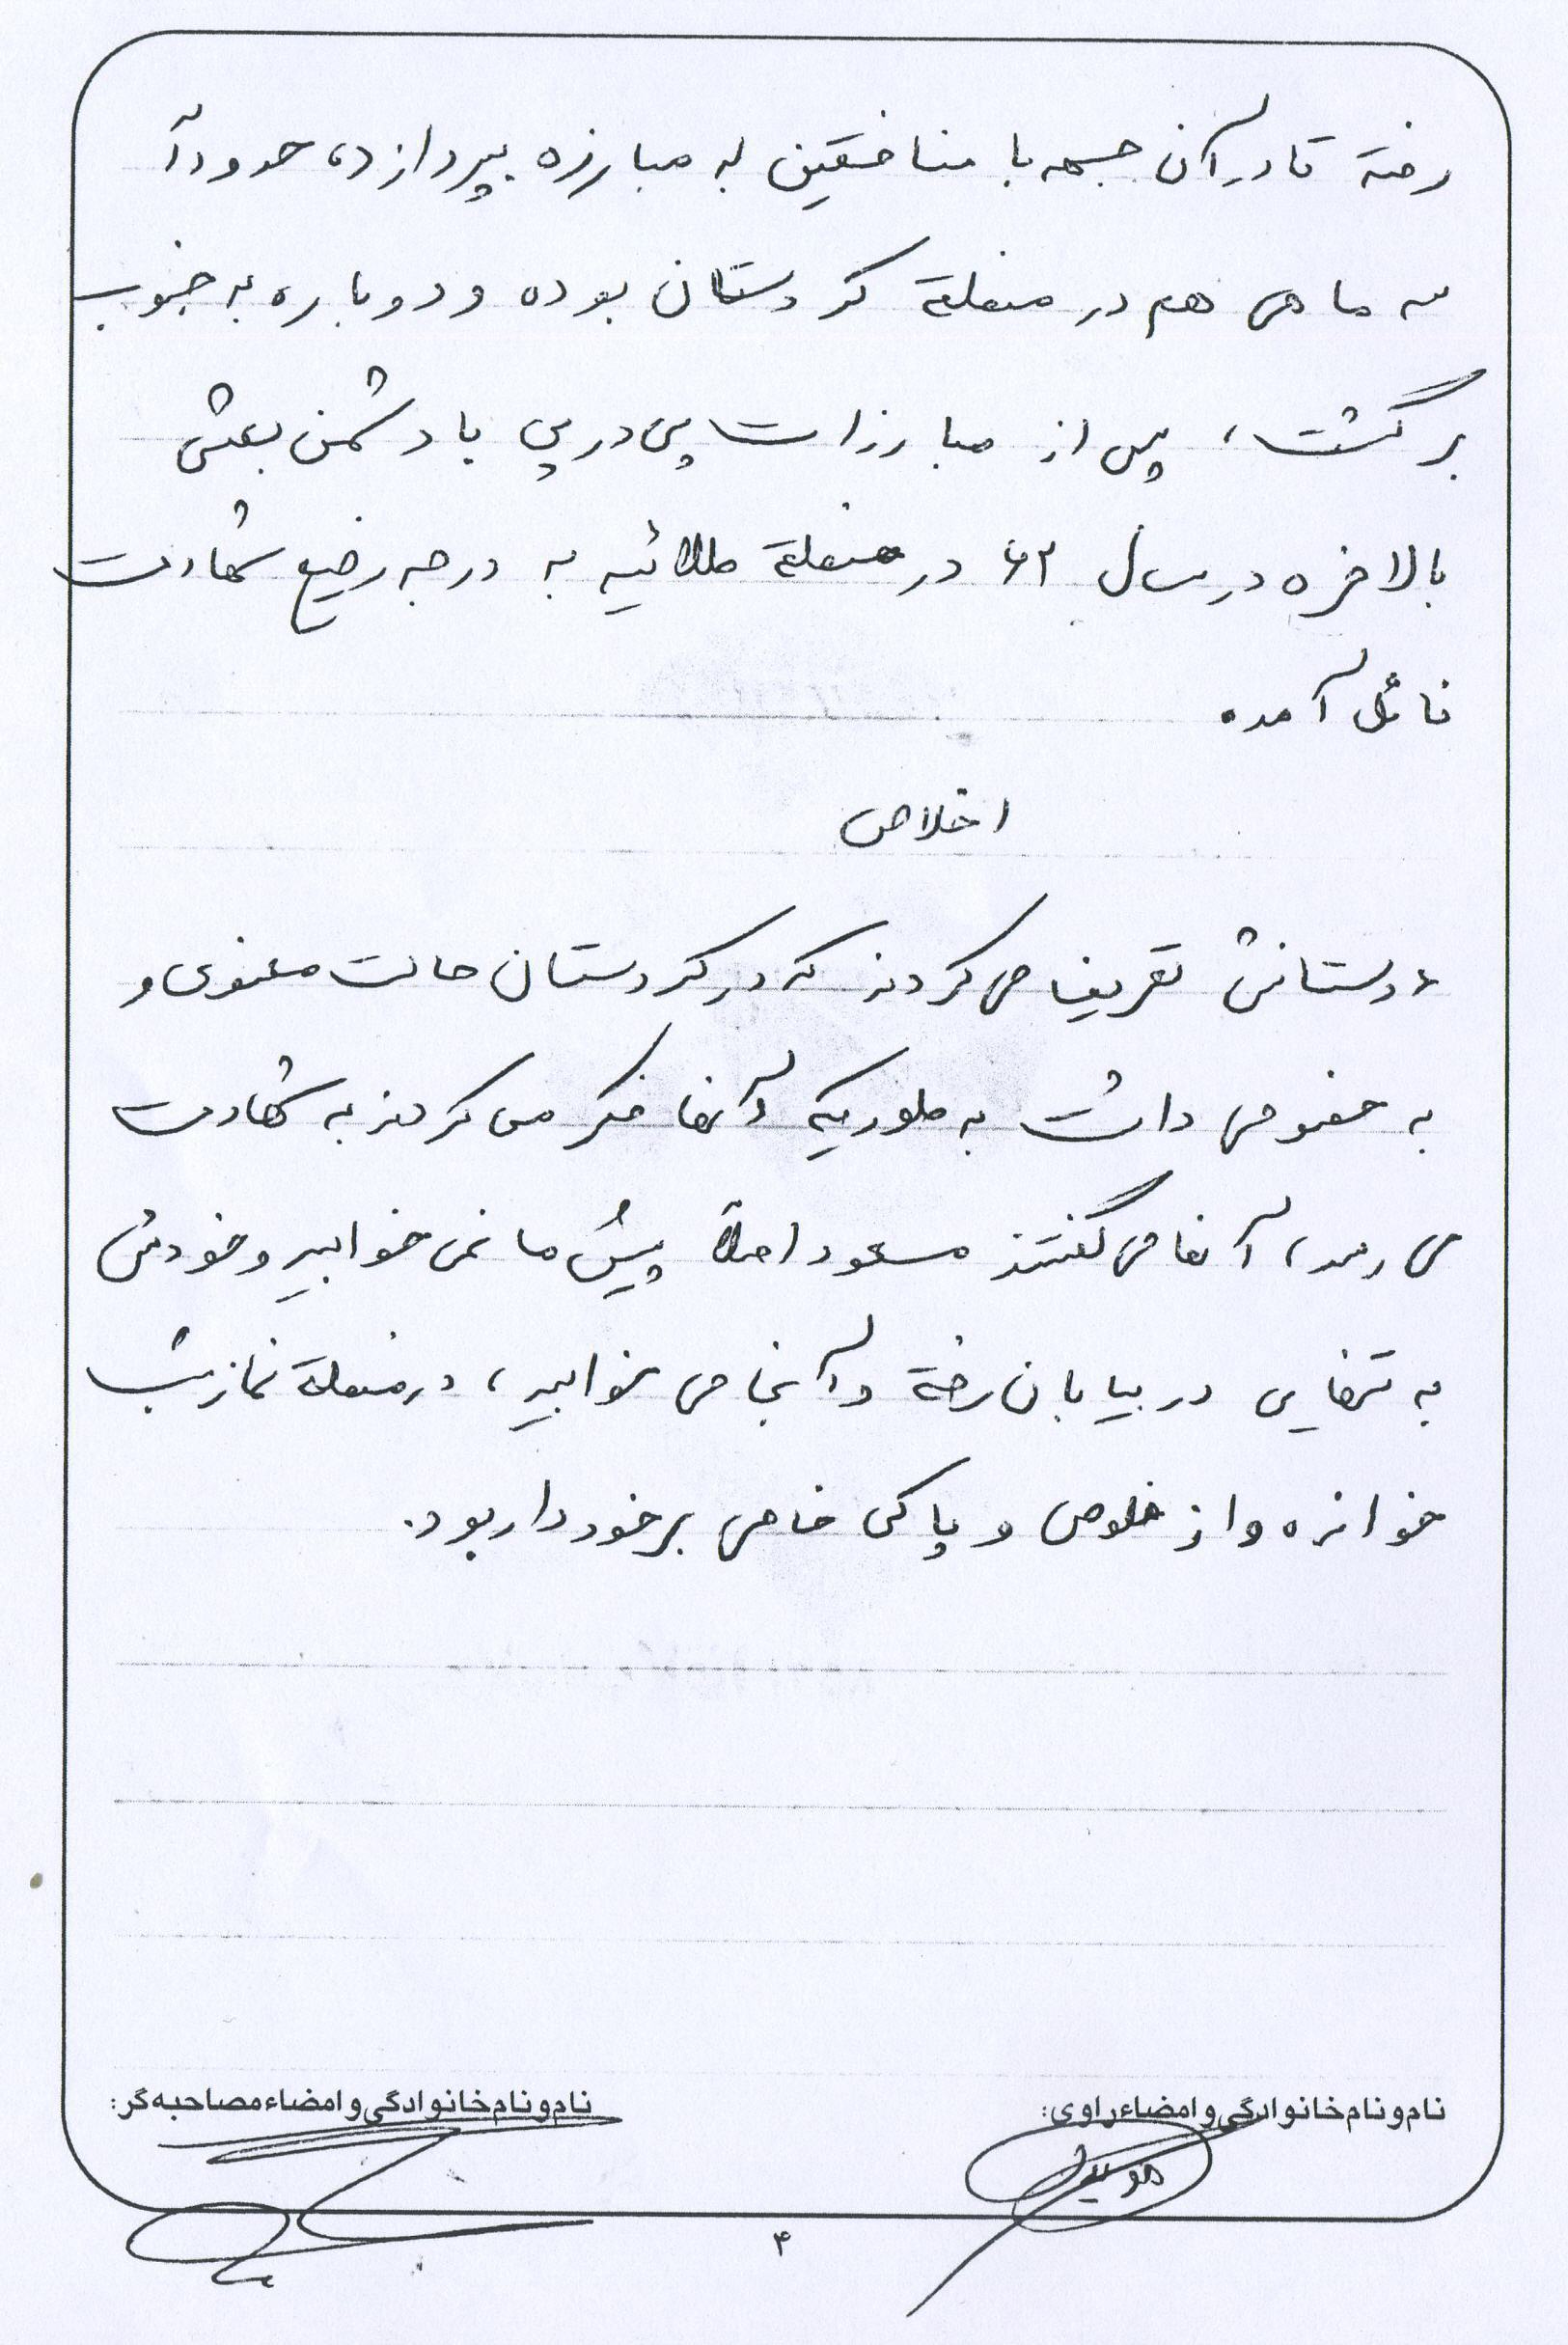 رفته تا در آن جبهه با منافقین به مبارزه بپردازد، حدوداً
سه ماهی هم در منطقة کردستان بوده و دوباره به جنوب
برگشت، پس از مبارزات پی در پی با دشمن بعثی
بالاخره در سال ۶۲ در منطقة طلائیه به درجه رفیع شهادت
نائل آمده
اخلاص
دوستانش تعریف می کردند که در کردستان حالت معنوی و
به خصوصی داشت به طوریکه آنها فکر می کردند به شهادت
می رسد، آنها می گفتند مسعود اصلاً پیش ما نمی خوابید و خودش
به تنهایی در بیابان رفته و آنجا می خوابید، در منطقة نماز شب
خوانده و از خلوص و پاکی خاصی برخوردار بود.
نام و نام خانوادگی و امضاء راوی:
نام و نام خانوادگی و امضاء مصاحبه گر:
۴